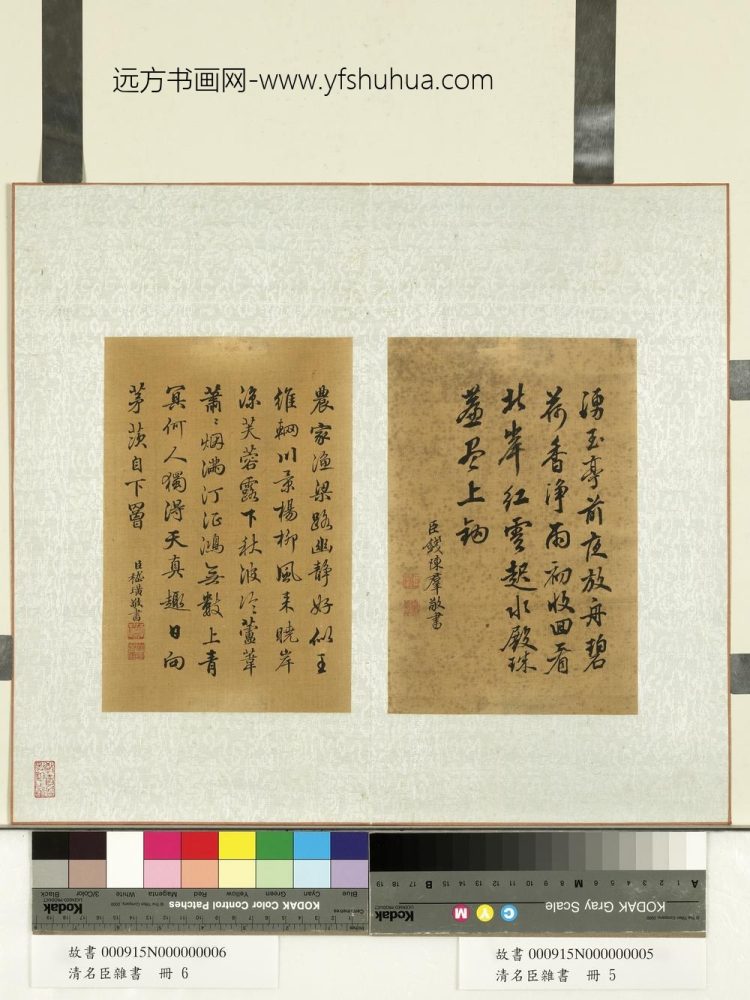 远方书画网-www.yfshuhua.com
湧玉亭前夜放舟碧
荷香淨雨初收回看
北岸紅雲起水殿珠
簾盡上鈎
臣錢陳羣敬書
農家漁梁路幽静好似王
維輞川景楊柳風来曉岸
涼芙蓉露下秋波冷蘆葦
蕭〻烟滿汀征鴻無數上青
冥何人獨淂天真趣日向
茅茨自下罾
臣嵇璜敬書
Blue Cyan Green Yellow Red Magenta White 3/Color Black
Kodak
KODAK Color Control Patches
Centimetres
KODAK Gray Scale
Kodak
C Y M
A M B
故書 000915N000000006
清名臣雜書 冊 6
故書 000915N000000005
清名臣雜書 冊 5